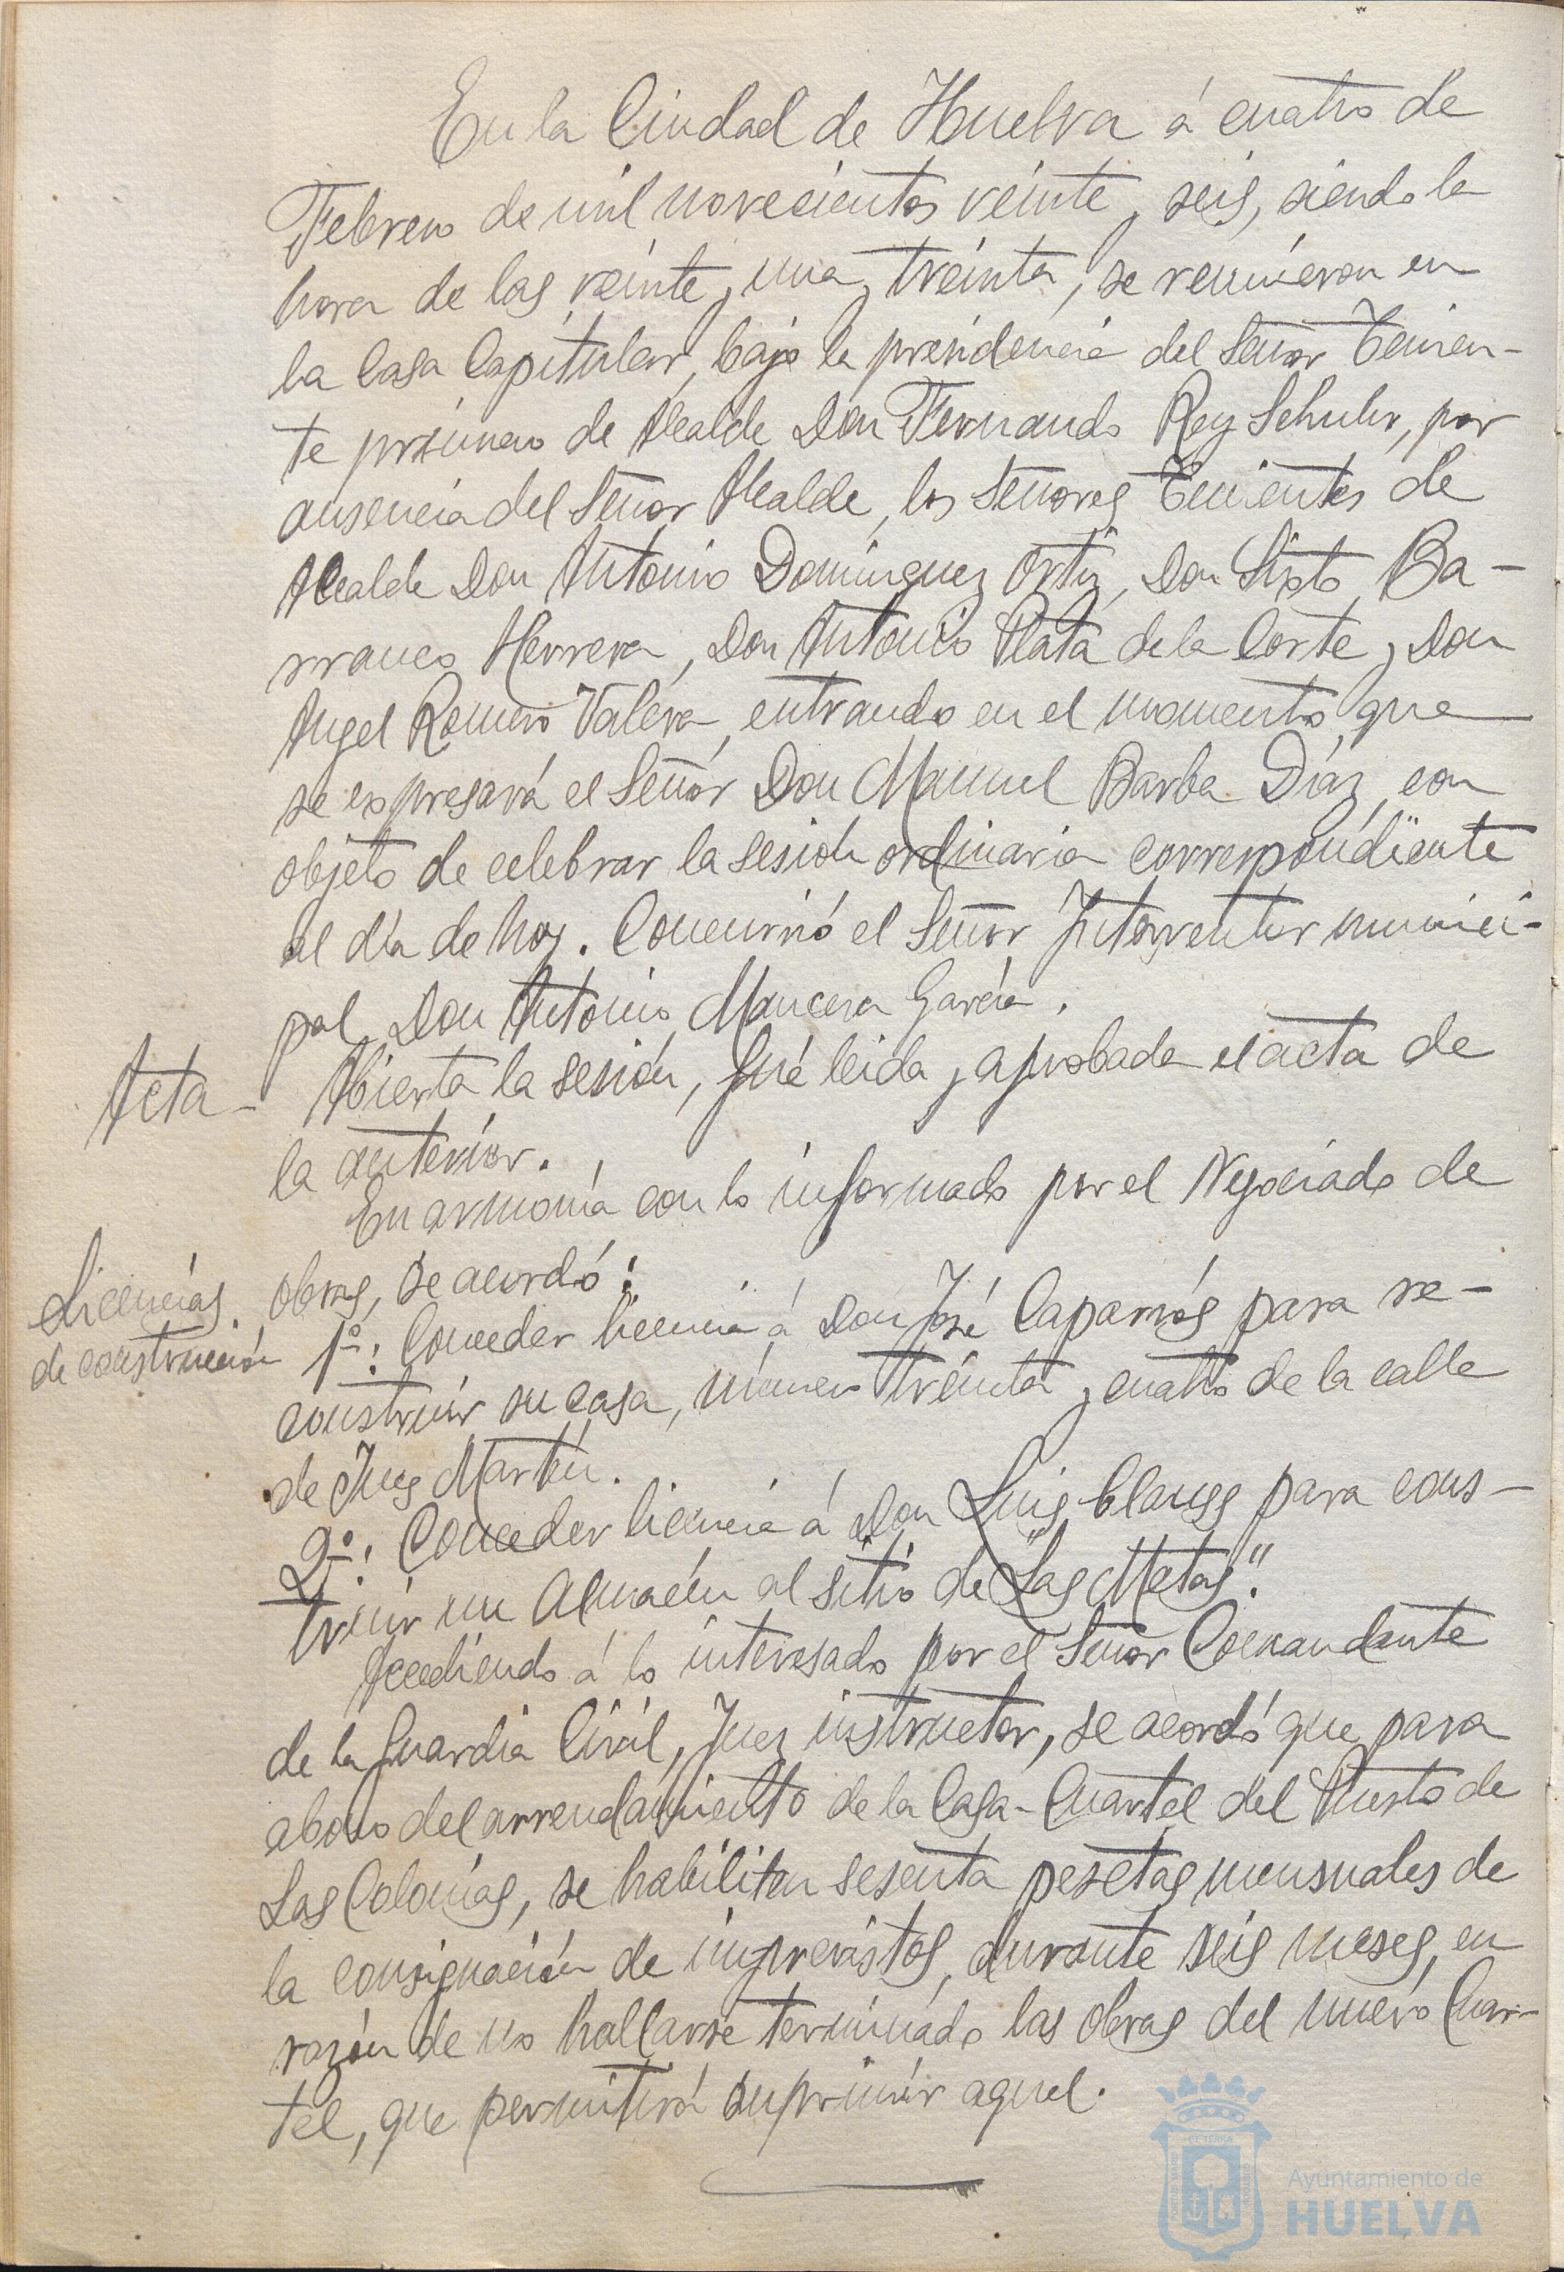 En la Ciudad de Huelva á cuatro de
Febrero de mil novecientos veinte y seis, siendo la
hora de las veinte y una y treinta, se reunieron en
la Casa Capitular, bajo la presidencia del Señor Tenien-
te primero de Alcalde Don Fernando Rey Schuhr, por
ausencia del Señor Alcalde, los Señores Tenientes de
Alcalde Don Antonio Dominguez Ortiz, Don Sixto Ba-
rranco Herrera, Don Antonio Plata de la Corte y Don
Angel Romero Valera, entrando en el momento que
se expresará el Señor Don Manuel Barba Díaz, con
objeto de celebrar la sesión ordinaria correspondiente
al día de hoy. Concurrió el Señor Interventor munici-
pal, Don Antonio Mancera García.
Acta - Abierta la sesión, fué leida y aprobada el acta de
la anterior.
En armonía con lo informado por el Negociado de
obras, se acordó:
Licencias
de construcción
1º: Conceder licencia á Don José Caparrós para re-
construir su casa, número treinta y cuatro de la calle
de Ines Martín.
2º: Conceder licencia á Don Luis Clauss para cons-
truir un Almacén al sitio de "Las Metas".
Accediendo á lo interesado por el Señor Comandante
de la Guardia Civil, Juez instructor, se acordó que para
abono del arrendamiento de la Casa-Cuartel del Puesto de
Las Colonias, se habiliten sesenta pesetas mensuales de
la consignación de imprevistos, durante seis meses, en
razón de no hallarse terminado las obras del nuevo Cuar-
tel, que permitirá suprimir aquel.
Ayuntamiento de
HUELVA